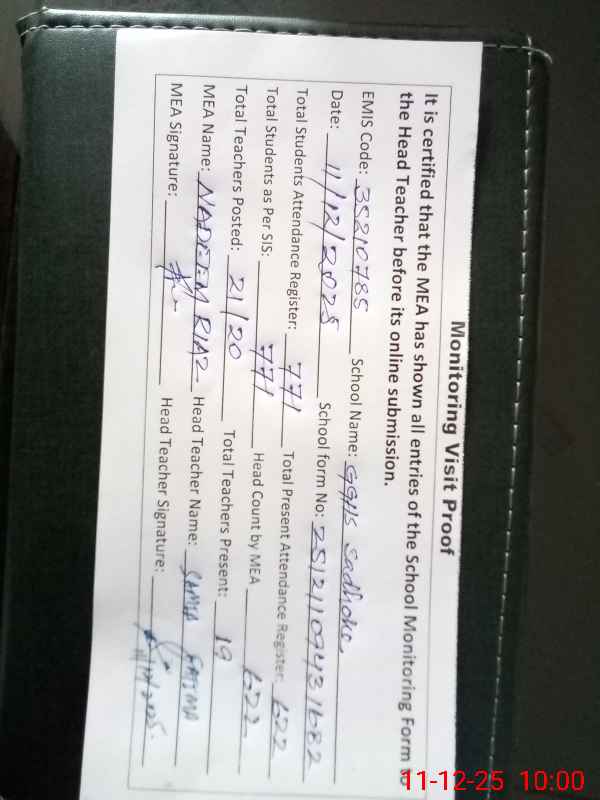 Monitoring Visit Proof
It is certified that the MEA has shown all entries of the School Monitoring Form to
the Head Teacher before its online submission.
EMIS Code: 35210785 School Name: GGHS Sadhoke
Date: 11/12/2025 School form No: 25121109431682
Total Students Attendance Register: 771 Total Present Attendance Register: 622
Total Students as Per SIS: 771 Head Count by MEA 622
Total Teachers Posted: 21/20 Total Teachers Present: 19
MEA Name: NADEEM RIAZ Head Teacher Name: SAMIA FATIMA
MEA Signature: Head Teacher Signature: 11/12/2025
11-12-25 10:00